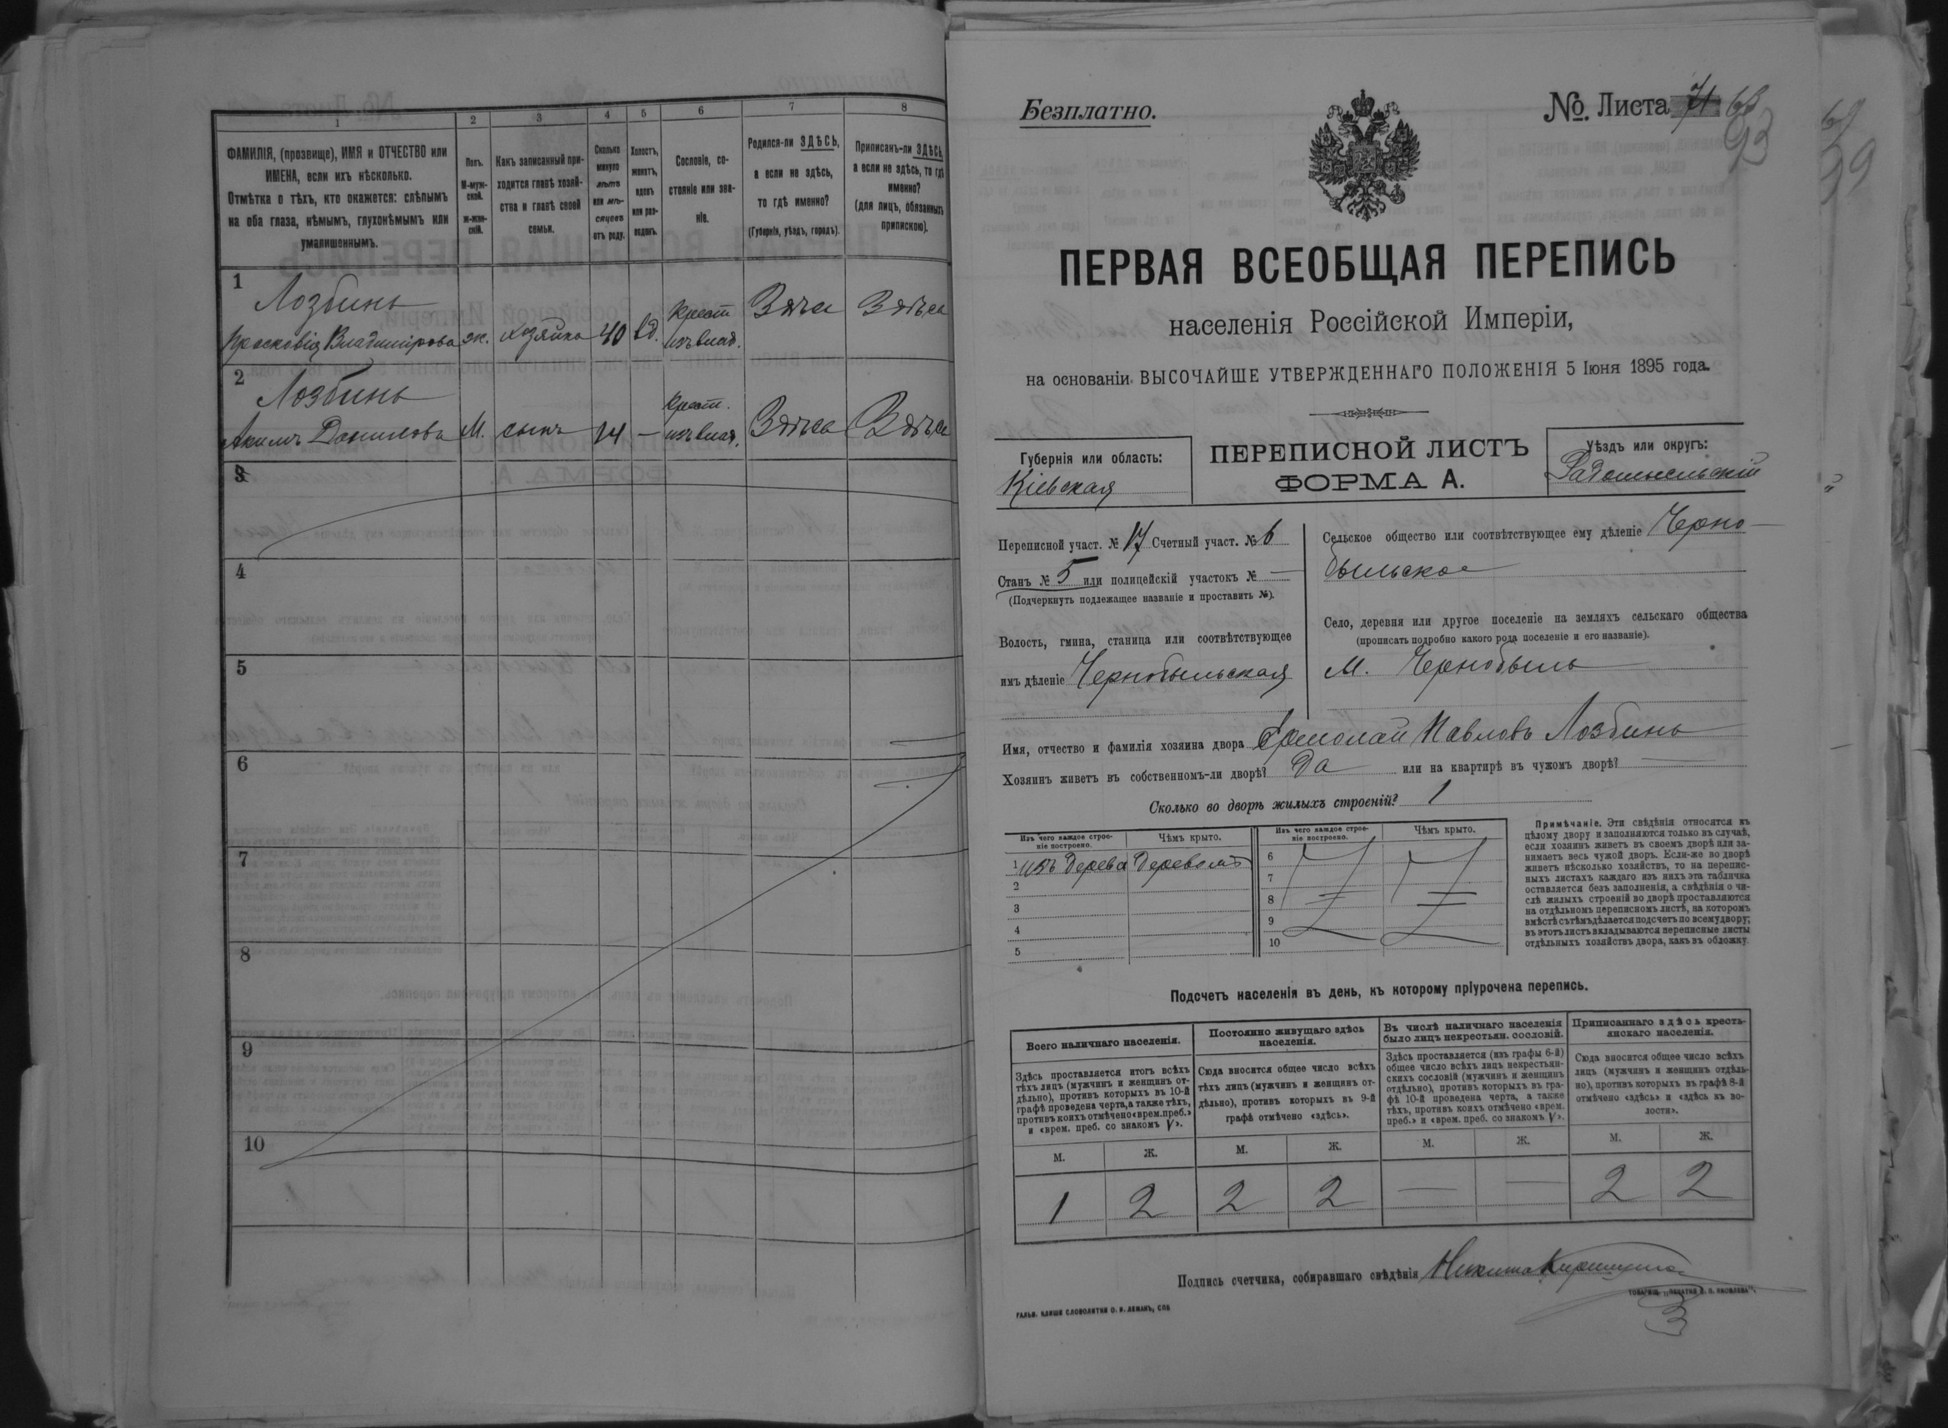 1
2
3
4
5
6
7
8
ФАМИЛІЯ, (прозвище), ИМЯ и ОТЧЕСТВО или
ИМЕНА, если ихъ нѣсколько.
Отмѣтка о тѣхъ, кто окажется: слѣпымъ
на оба глаза, нѣмымъ, глухонѣмымъ или
умалишеннымъ.
Полъ.
М-муж-
ской.
ж-жен-
скій.
Какъ записанный при-
ходится главѣ хозяй-
ства и главѣ своей
семьи.
Сколько
минуло
лѣтъ
или мѣ-
сяцевъ
отъ роду.
Холостъ,
женатъ,
вдовъ
или раз-
веденъ.
Сословіе, со-
стояніе или зва-
ніе.
Родился-ли ЗДѢСЬ,
а если не здѣсь,
то гдѣ именно?
(Губернія, уѣздъ, городъ).
Приписанъ-ли ЗДѢСЬ,
а если не здѣсь, то гдѣ
именно?
(для лицъ, обязанныхъ
припискою).
1
Лозбинъ
Прасковія Владимірова жк. хозяйка 40 вд. Крест. изъ влад. Здѣсь Здѣсь
2
Лозбинъ
Акимъ Данилова М. сынъ 14 — Крест. изъ влад. Здѣсь Здѣсь
3
4
5
6
7
8
9
10
Безплатно.
№. Листа 71 63
93
69
99
ПЕРВАЯ ВСЕОБЩАЯ ПЕРЕПИСЬ
населенія Россійской Имперіи,
на основаніи ВЫСОЧАЙШЕ УТВЕРЖДЕННАГО ПОЛОЖЕНІЯ 5 Іюня 1895 года.
Губернія или область:
Кіевская
ПЕРЕПИСНОЙ ЛИСТЪ
ФОРМА А.
Уѣздъ или округъ:
Радомысльскій
Переписной участ. № 17 Счетный участ. № 6
Станъ № 5 или полицейскій участокъ № —
(Подчеркнуть подлежащее названіе и проставить №).
Волость, гмина, станица или соотвѣтствующее
имъ дѣленіе Чернобыльская
Сельское общество или соотвѣтствующее ему дѣленіе Черно-
быльское
Село, деревня или другое поселеніе на земляхъ сельскаго общества
(прописать подробно какого рода поселеніе и его названіе).
М. Чернобыль
Имя, отчество и фамилія хозяина двора Ермолай Павловъ Лозбинъ
Хозяинъ живетъ въ собственномъ-ли дворѣ? Да или на квартирѣ въ чужомъ дворѣ? —
Сколько во дворѣ жилыхъ строеній? 1
Изъ чего каждое строе-
ніе построено.
Чѣмъ крыто.
Изъ чего каждое строе-
ніе построено.
Чѣмъ крыто.
1 изъ дерева Деревомъ
2
3
4
5
6
7
8
9
10
Примѣчаніе. Эти свѣдѣнія относятся къ
цѣлому двору и заполняются только въ случаѣ,
если хозяинъ живетъ въ своемъ дворѣ или за-
нимаетъ весь чужой дворъ. Если-же во дворѣ
живетъ нѣсколько хозяйствъ, то на перепис-
ныхъ листахъ каждаго изъ нихъ эта табличка
оставляется безъ заполненія, а свѣдѣнія о чи-
слѣ жилыхъ строеній во дворѣ проставляются
на отдѣльномъ переписномъ листѣ, на которомъ
вмѣстѣ съ тѣмъ дѣлается подсчетъ по всему двору;
въ этотъ листъ вкладываются переписные листы
отдѣльныхъ хозяйствъ двора, какъ въ обложку.
Подсчетъ населенія въ день, къ которому пріурочена перепись.
Всего наличнаго населенія.
Здѣсь проставляется итогъ всѣхъ
тѣхъ лицъ (мужчинъ и женщинъ от-
дѣльно), противъ которыхъ въ 10-й
графѣ проведена черта, а также тѣхъ,
противъ коихъ отмѣчено «врем. преб.»
и «врем. преб. со знакомъ V».
Постоянно живущаго здѣсь
населенія.
Сюда вносится общее число всѣхъ
тѣхъ лицъ (мужчинъ и женщинъ от-
дѣльно), противъ которыхъ въ 9-й
графѣ отмѣчено «здѣсь».
Въ числѣ наличнаго населенія
было лицъ некрестьян. сословій.
Здѣсь проставляется (изъ графы 6-й)
общее число всѣхъ лицъ некрестьян-
скихъ сословій (мужчинъ и женщинъ
отдѣльно), противъ которыхъ въ гра-
фѣ 10-й проведена черта, а также
тѣхъ, противъ коихъ отмѣчено «врем.
преб.» и «врем. преб. со знакомъ V».
Приписаннаго здѣсь кресть-
янскаго населенія.
Сюда вносится общее число всѣхъ
лицъ (мужчинъ и женщинъ отдѣль-
но), противъ которыхъ въ графѣ 8-й
отмѣчено «здѣсь» и «здѣсь къ во-
лости».
М. Ж. М. Ж. М. Ж. М. Ж.
1 2 2 2 — — 2 2
Подпись счетчика, собиравшаго свѣдѣнія Никита
ГАЛЬВ. КЛИШЕ СЛОВОЛИТНИ О. И. ЛЕМАНЪ, СПБ
ТОВАРИЩ. „ПЕЧАТНЯ С. П. ЯКОВЛЕВА".
3